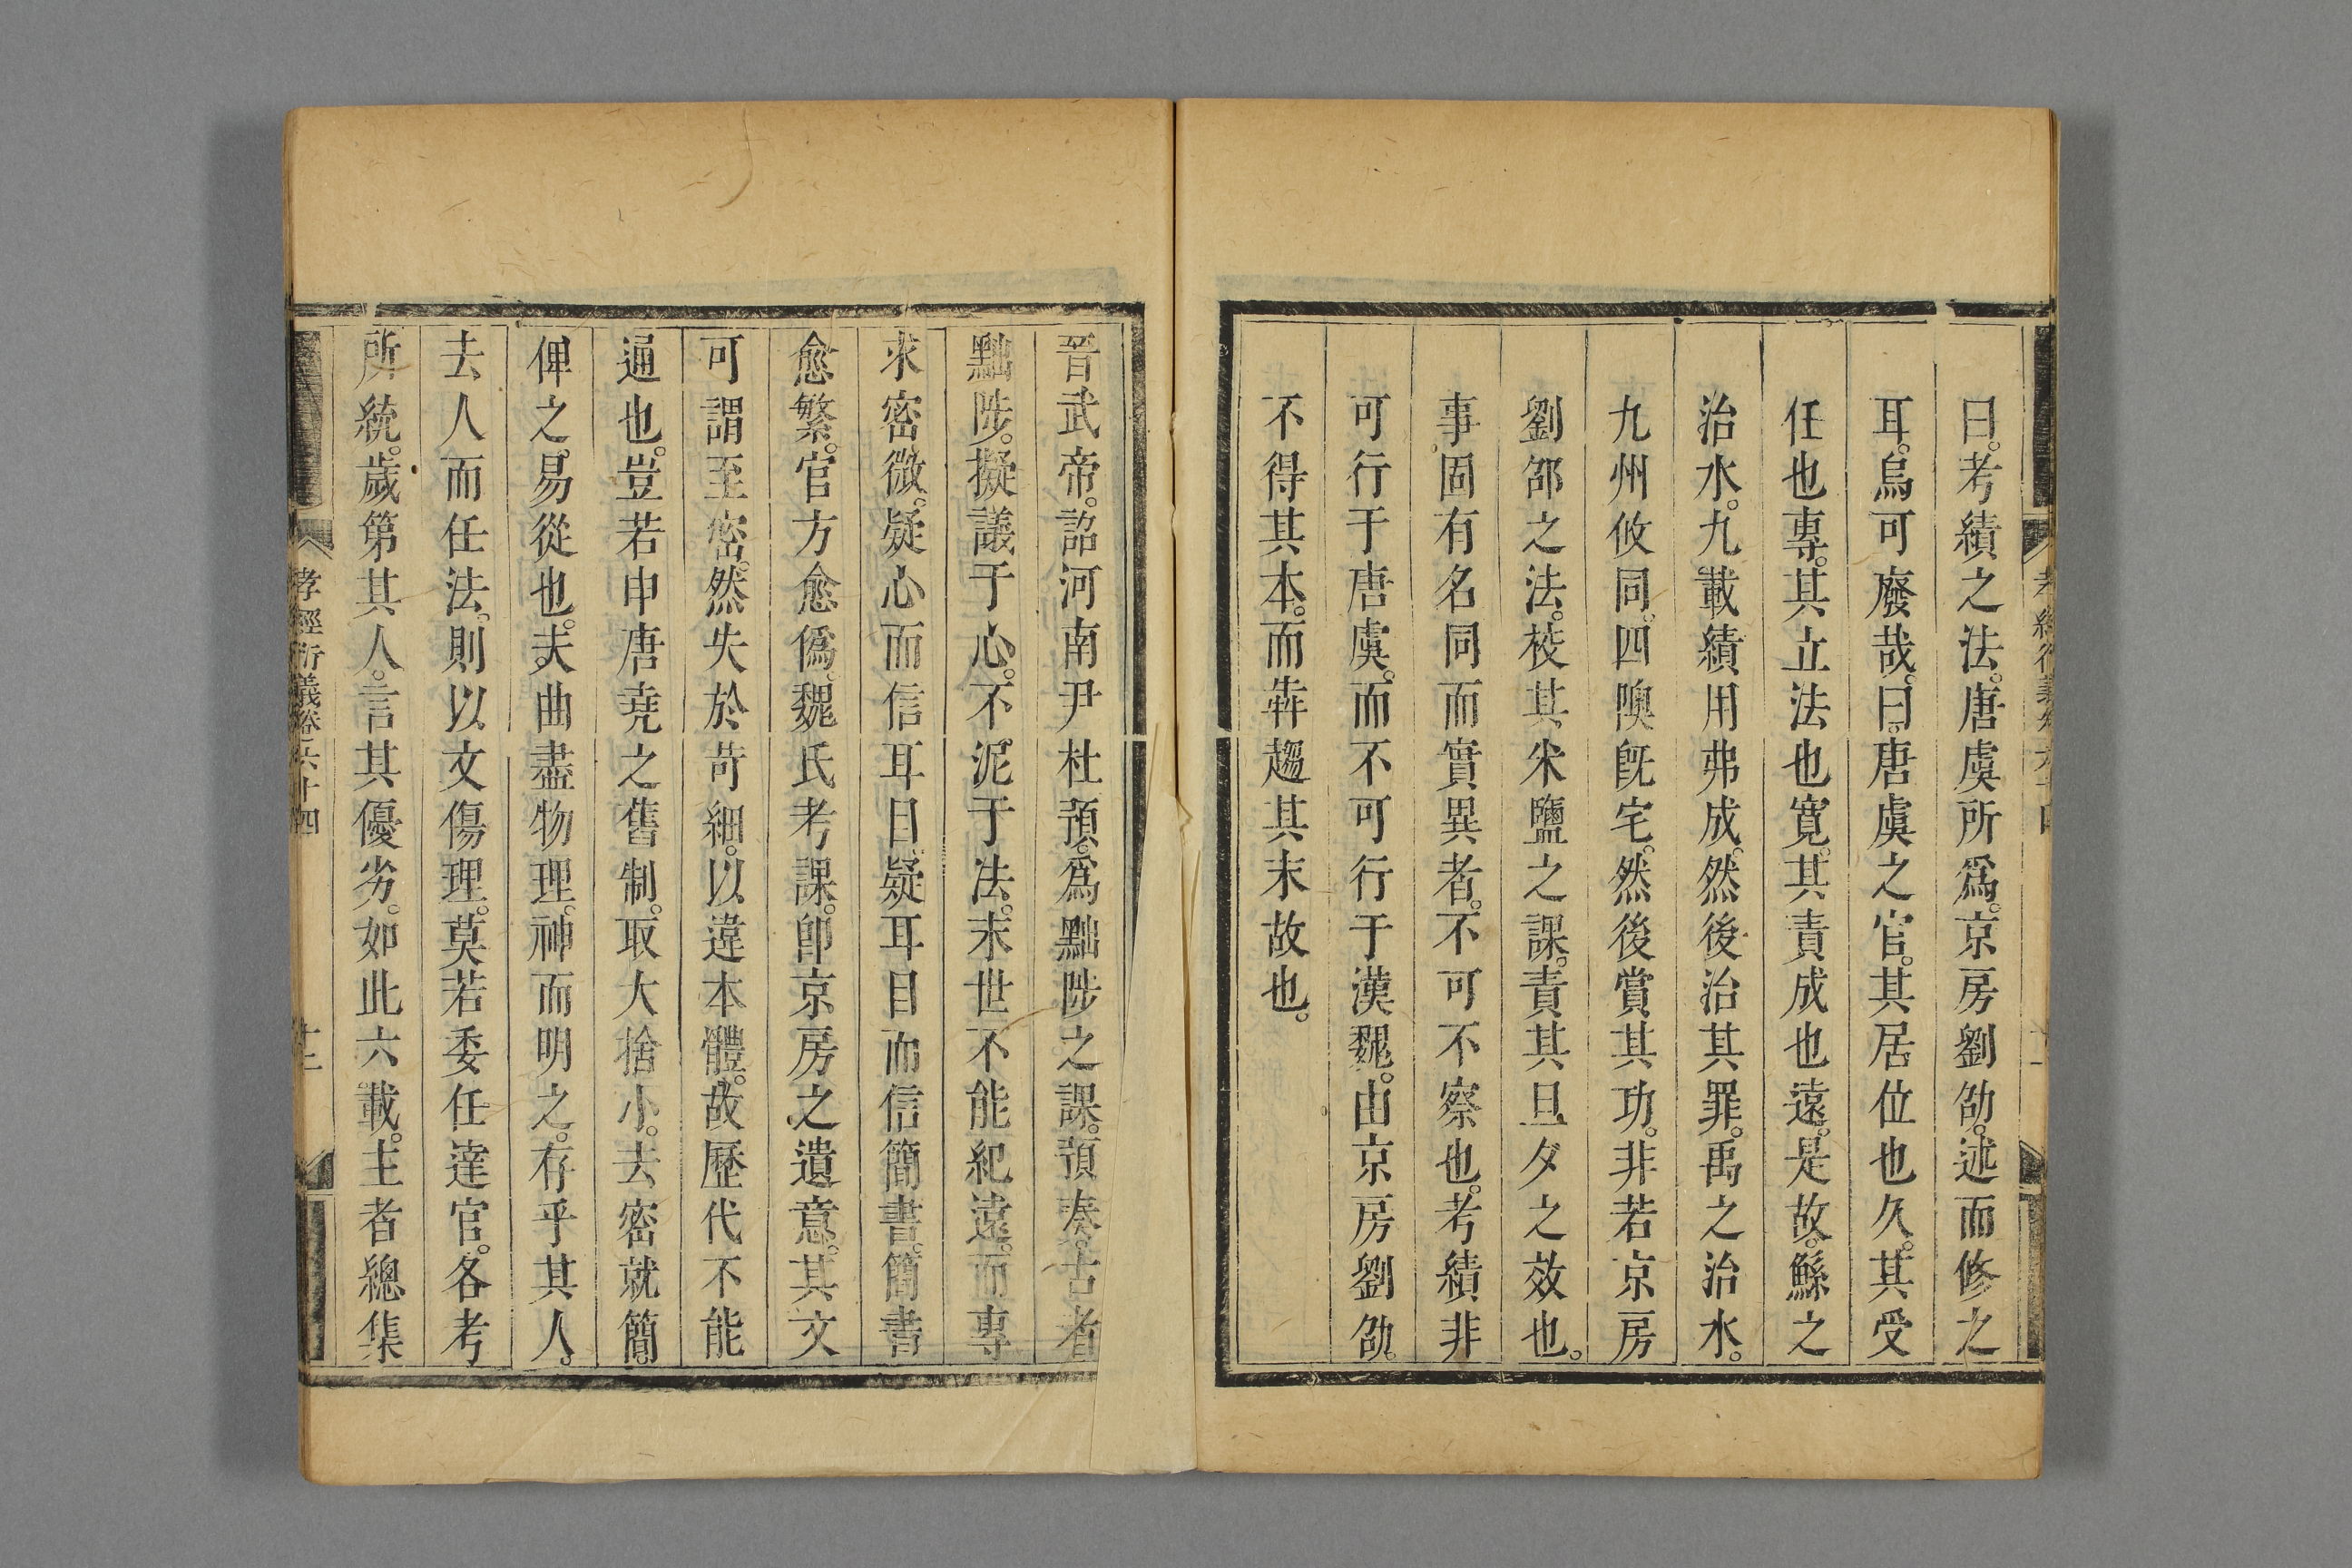 曰。考績之法。唐虞所爲。京房劉劭。述而修之
耳。烏可廢哉。曰。唐虞之官。其居位也久。其受
任也專。其立法也寬。其責成也遠。是故。鯀之
治水。九載績用弗成。然後治其罪。禹之治水。
九州攸同。四隩旣宅。然後賞其功。非若京房
劉邵之法。校其米鹽之課。責其旦夕之效也。
事固有名同而實異者。不可不察也。考績非
可行于唐虞。而不可行于漢魏。由京房劉劭。
不得其本。而犇趨其末故也。
晉武帝。詔河南尹杜預。爲黜陟之課。預奏。古者
黜陟。擬議于心。不泥于法。末世不能紀遠。而專
求密微。疑心而信耳目。疑耳目而信簡書。簡書
愈繁。官方愈僞。魏氏考課。卽京房之遺意。其文
可謂至密。然失於苛細。以違本體。故歷代不能
通也。豈若申唐堯之舊制。取大捨小。去密就簡。
俾之易從也。夫曲盡物理。神而明之。存乎其人。
去人而任法。則以文傷理。莫若委任達官。各考
所統。歲第其人。言其優劣。如此六載。主者總集
孝經衍義卷六十四
十二